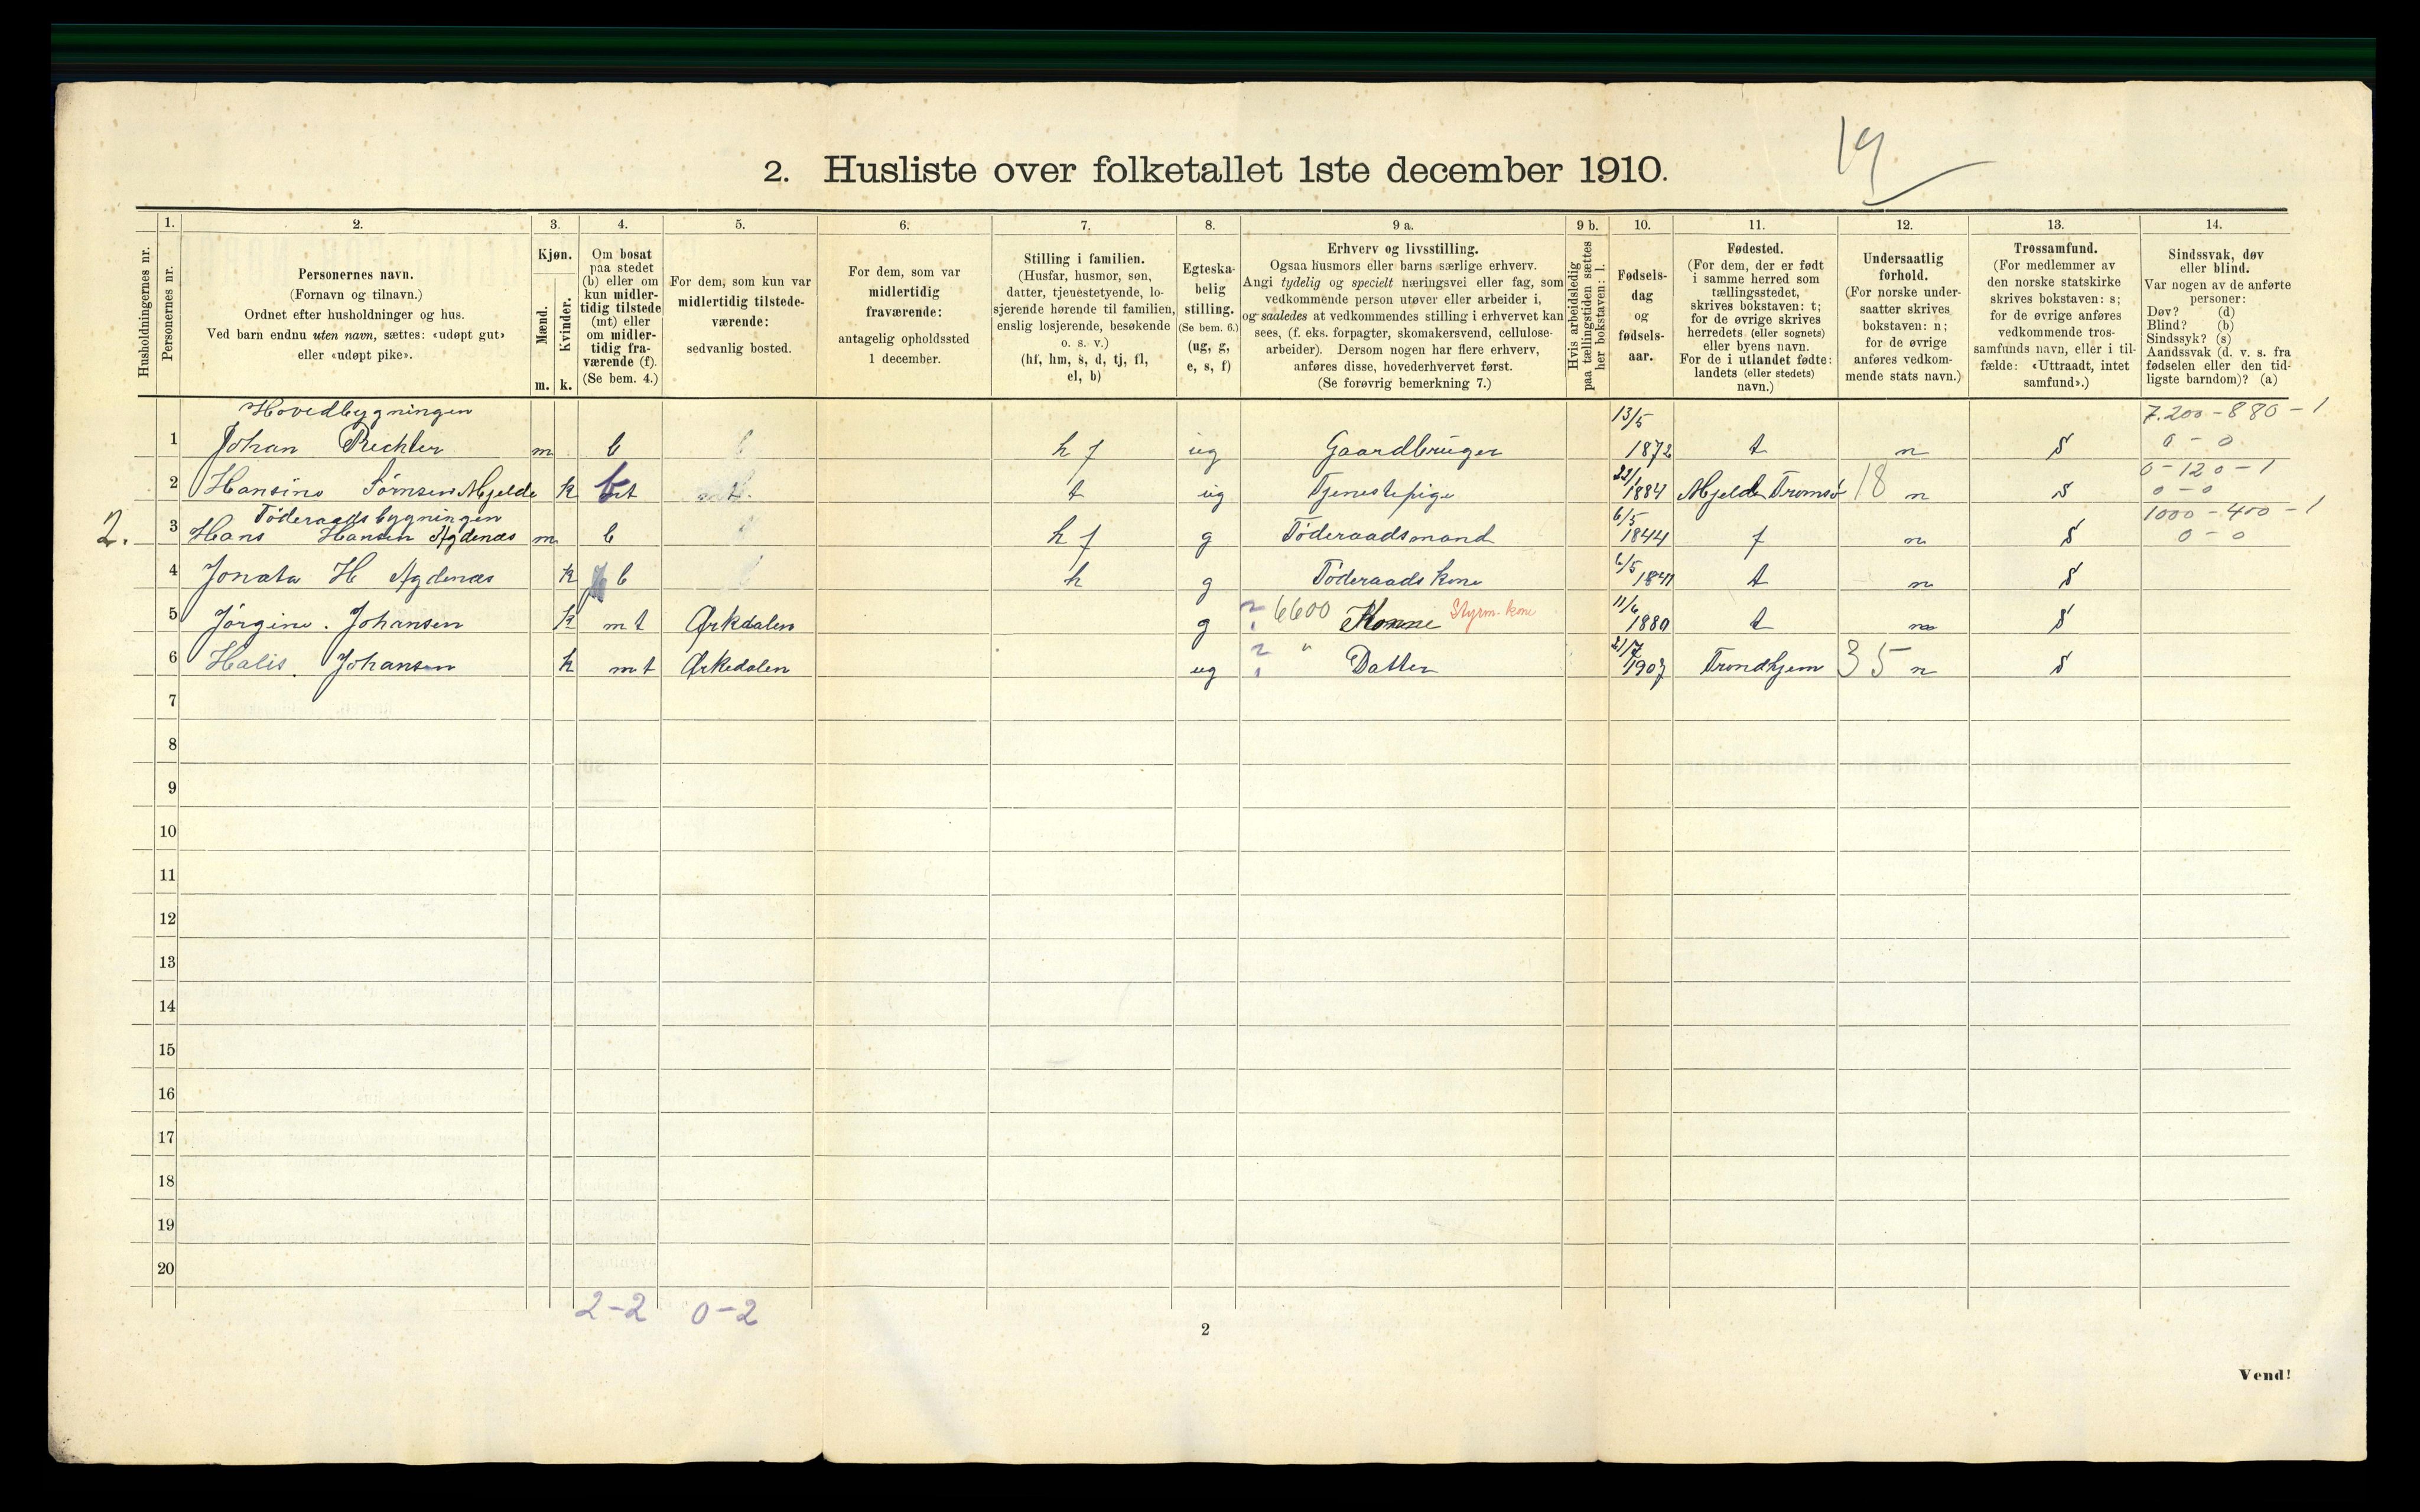 19
2. Husliste over folketallet 1ste december 1910.
Husholdningernes nr.
1.
Personernes nr.
2.
Personernes navn.
(Fornavn og tilnavn.)
Ordnet efter husholdninger og hus.
Ved barn endnu uten navn, sættes: «udøpt gut»
eller «udøpt pike».
3.
Kjøn.
Mænd.
Kvinder.
m. k.
4.
Om bosat
paa stedet
(b) eller om
kun midler-
tidig tilstede
(mt) eller
om midler-
tidig fra-
værende (f).
(Se bem. 4.)
5.
For dem, som kun var
midlertidig tilstede-
værende:
sedvanlig bosted.
6.
For dem, som var
midlertidig
fraværende:
antagelig opholdssted
1 december.
7.
Stilling i familien.
(Husfar, husmor, søn,
datter, tjenestetyende, lo-
sjerende hørende til familien,
enslig losjerende, besøkende
o. s. v.)
(hf, hm, s, d, tj, fl,
el, b)
8.
Egteska-
belig
stilling.
(Se bem. 6.)
(ug, g,
e, s, f)
9 a.
Erhverv og livsstilling.
Ogsaa husmors eller barns særlige erhverv.
Angi tydelig og specielt næringsvei eller fag, som
vedkommende person utøver eller arbeider i,
og saaledes at vedkommendes stilling i erhvervet kan
sees, (f. eks. forpagter, skomakersvend, cellulose-
arbeider). Dersom nogen har flere erhverv,
anføres disse, hovederhvervet først.
(Se forøvrig bemerkning 7.)
9 b.
Hvis arbeidsledig
paa tællingstiden sættes
her bokstaven: l.
10.
Fødsels-
dag
og
fødsels-
aar.
11.
Fødested.
(For dem, der er født
i samme herred som
tællingsstedet,
skrives bokstaven: t;
for de øvrige skrives
herredets (eller sognets)
eller byens navn.
For de i utlandet fødte:
landets (eller stedets)
navn.)
12.
Undersaatlig
forhold.
(For norske under-
saatter skrives
bokstaven: n;
for de øvrige
anføres vedkom-
mende stats navn.)
13.
Trossamfund.
(For medlemmer av
den norske statskirke
skrives bokstaven: s;
for de øvrige anføres
vedkommende tros-
samfunds navn, eller i til-
fælde: «Uttraadt, intet
samfund».)
14.
Sindssvak, døv
eller blind.
Var nogen av de anførte
personer:
Døv? (d)
Blind? (b)
Sindssyk? (s)
Aandssvak (d. v. s. fra
fødselen eller den tid-
ligste barndom)? (a)
Hovedbygningen 13/5 7.200 - 880 - 1
1 Johan Rechter m b h f ug Gaardbruger 1872 t n s 0 - 0
22/1 0 - 120 - 1
2 Hansine Sørnsen Mjelde k t ug Tjenestepige 1884 Mjelde Tromsø 18 n s 0 - 0
Föderaadsbygningen 6/5 1000 - 400 - 1
2. 3 Hans Hansen Agdenæs m b h f g Föderaadsmand 1844 f n s 0 - 0
4 Jonata H Agdenæs k b h g Föderaads kone 6/5 1841 t n s
5 Jörgine. Johansen k m t Ørkdalen g 6600 Konne Styrm. kone 11/6 1880 t n s
6 Halis. Johansen k m t Ørkedalen ug " Datter 21/7 1907 Trondhjem 35 n s
7
8
9
10
11
12
13
14
15
16
17
18
19
20
2-2 0-2
2
Vend!